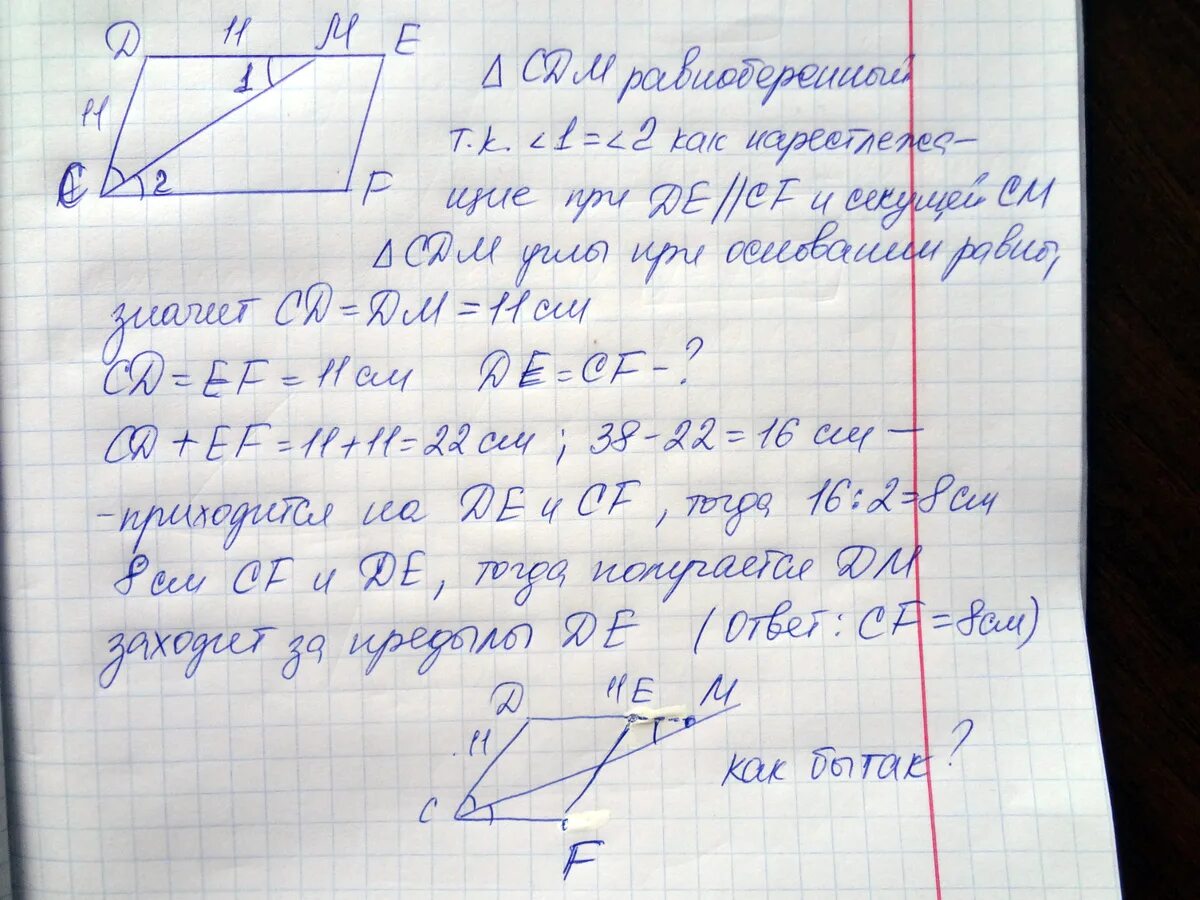 D 11 M E
1
11
C 2 F
Δ CDM равнобедренный
т.к. <1=<2 как накрестлежа-
щие при DE//CF и секущей CM
Δ CDM углы при основании равны,
значит CD=DM=11 см
CD=EF=11 см DE=CF-?
CD+EF=11+11=22 см; 38-22=16 см —
-приходится на DE и CF, тогда 16:2=8 см
8 см CF и DE, тогда получается DM
заходит за пределы DE (Ответ: CF=8 см)
D 11 E M
11
как бы так?
C
F